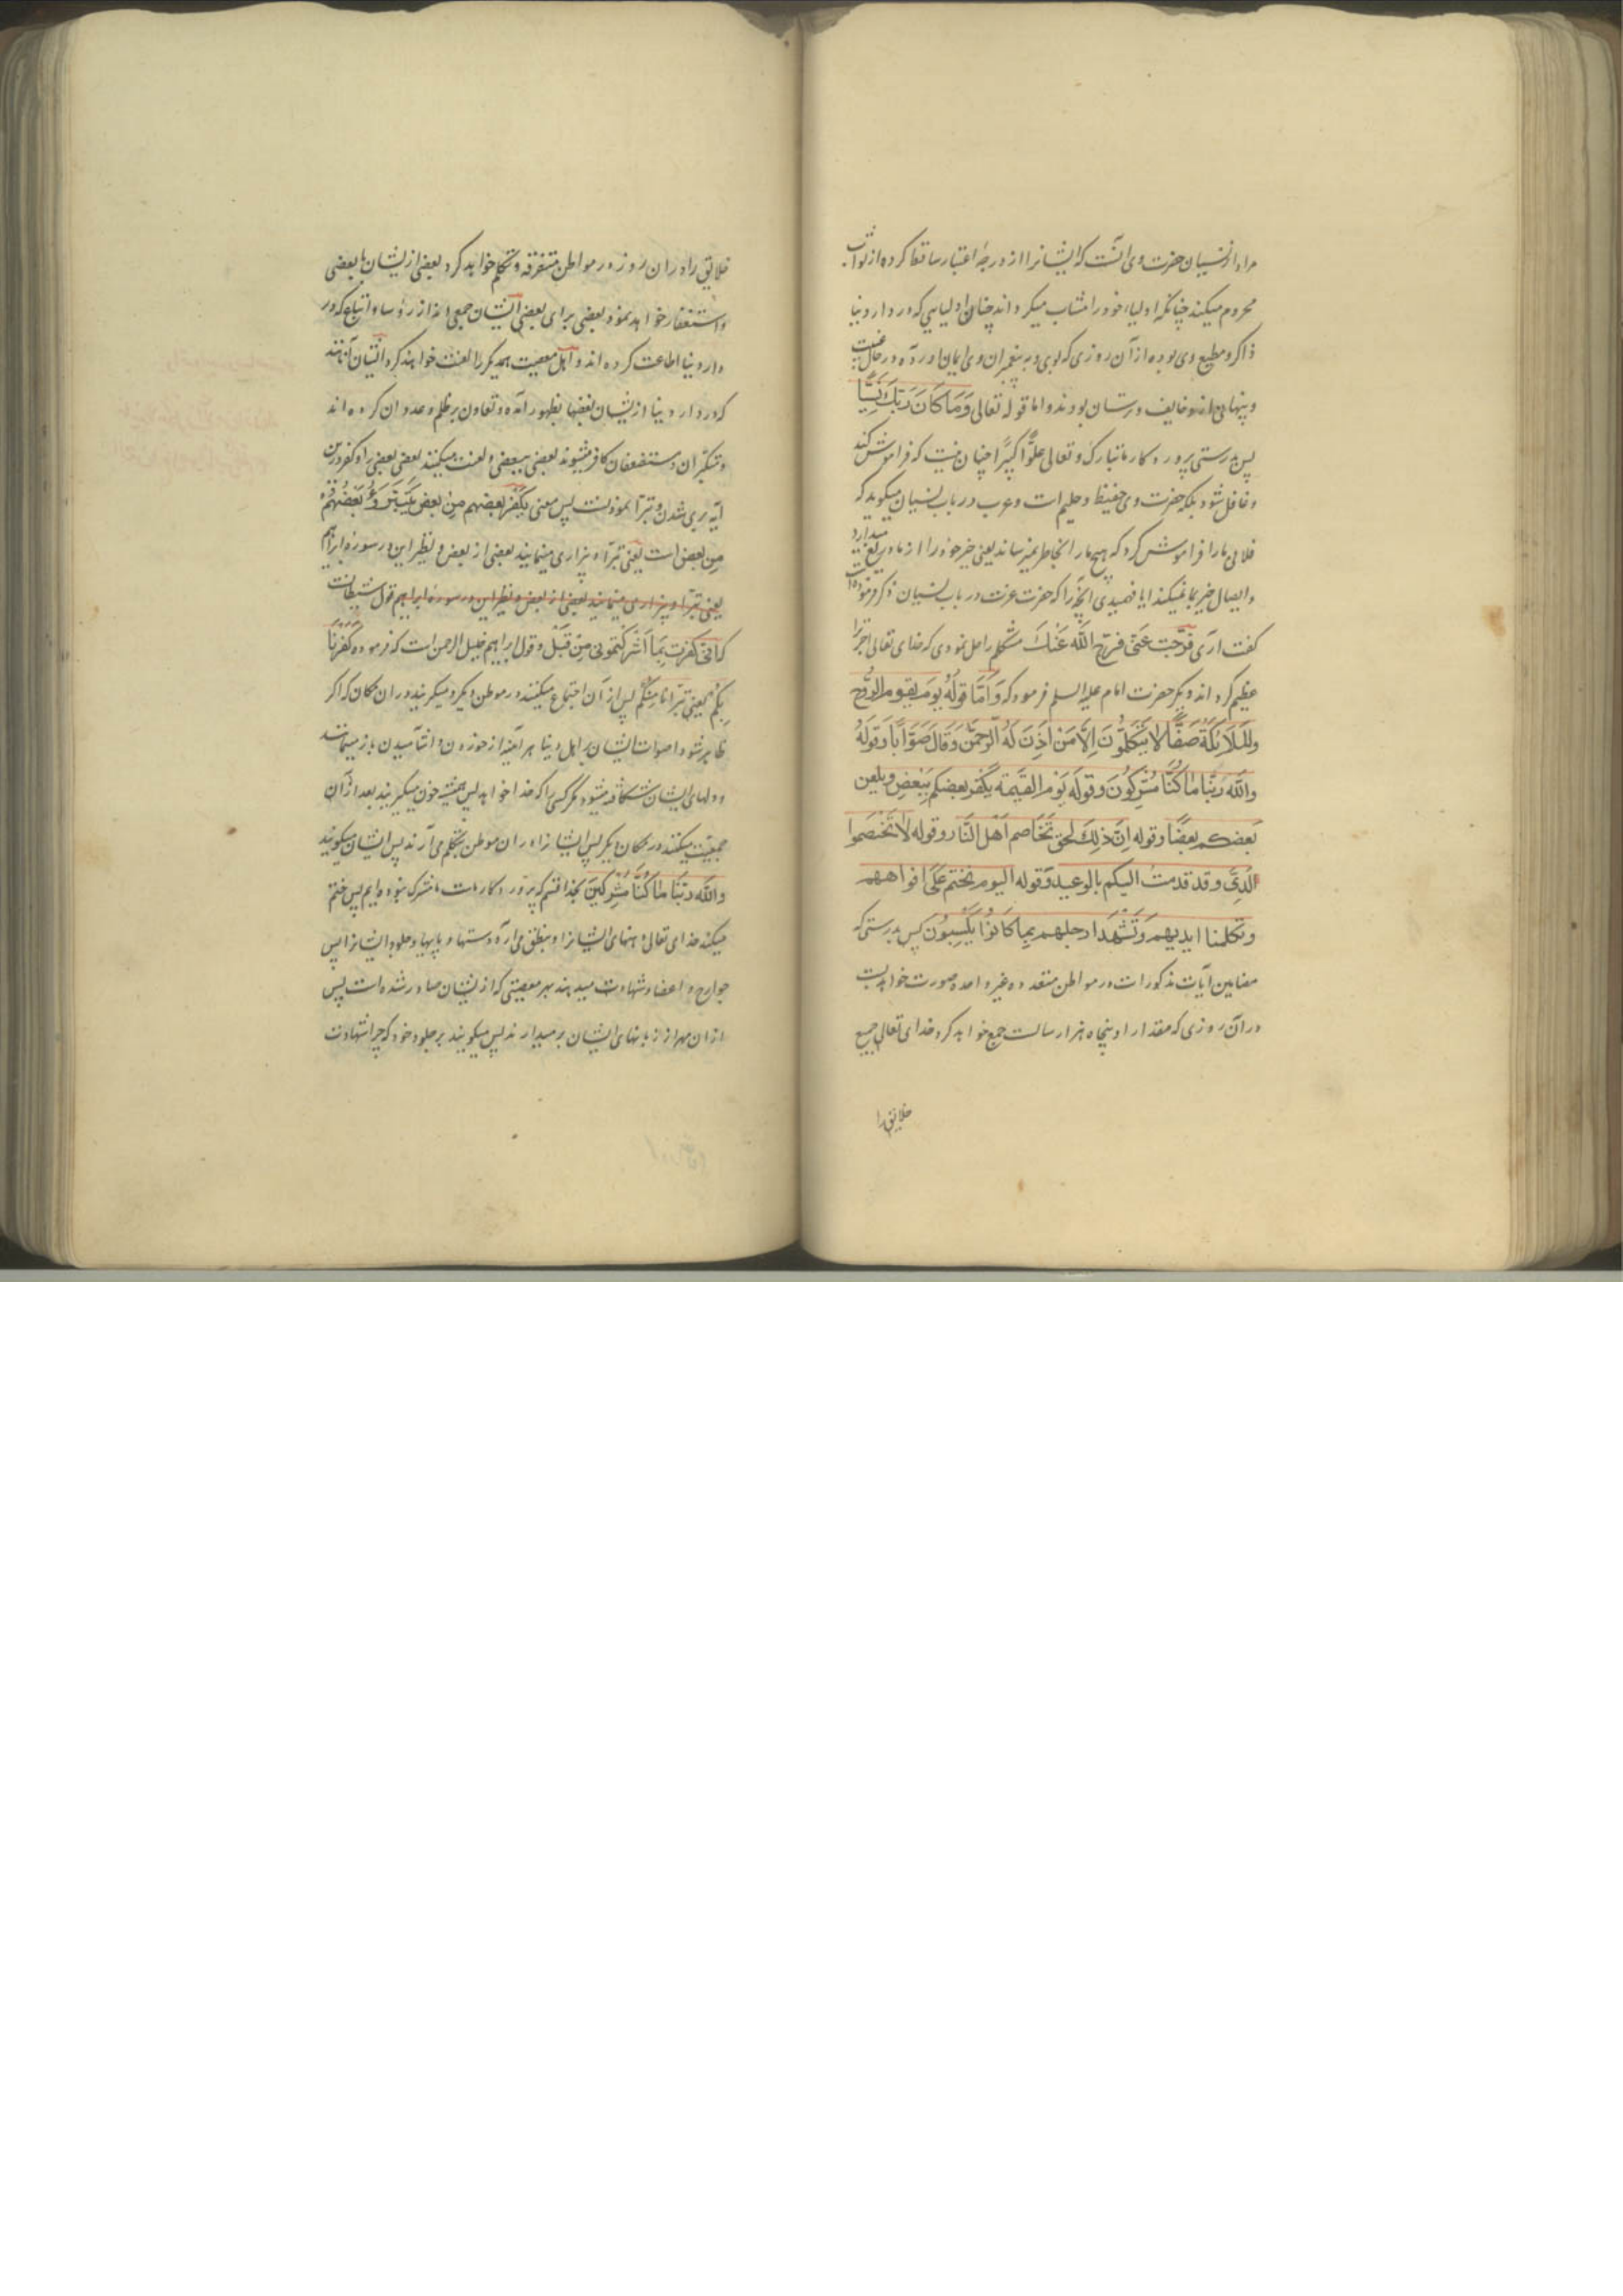 مراد از نسیان حضرت وی آنست که ایشانرا از درجهٔ اعتبار ساقط کرده از ثواب
محروم میکند چنانکه اولیاء خود را مثاب میگرداند چنان اولیایی که در دار دنیا
ذاکر و مطیع وی بوده از آن روزی که بوی و به پیغمبران وی ایمان آورده در حال غیبت
و پنهانی از وی خایف و ترسان بودند و اما قوله تعالی وَمَا كَانَ رَبُّكَ نَسِيًّا
پس بدرستی پروردکار ما تبارک و تعالی علوًّا کبیرًا چنان نیست که فراموش کند
و غافل شود بلکه حضرت وی حفیظ و علیم است و عرب در باب نسیان میگوید که
فلانی ما را فراموش کرد که هیچ ما را بخاطر نمیرساند یعنی خیر خود را از ما دریغ میدارد
و ایصال خیر بما نمیکند ایا فهمیدی انچه را که حضرت عزت در باب نسیان ذکر فرموده است
گفت اری فَرَّجْتَ عَنّی فَرَّجَ اللّٰهُ عَنْكَ مشکلم را حل نمودی که خدای تعالی اجر ترا
عظیم گرداند و دیگر حضرت امام علیه السلم فرمود که وَاَمَّا قَوْلُهُ يَوْمَ يَقُومُ الرُّوحُ
وَالْمَلَائِكَةُ صَفًّا لَا يَتَكَلَّمُونَ اِلَّا مَنْ اَذِنَ لَهُ الرَّحْمٰنُ وَقَالَ صَوَابًا وَقَوْلُهُ
وَاللّٰهِ رَبِّنَا مَا كُنَّا مُشْرِكُونَ وَقَوْلُهُ يَوْمَ الْقِيٰمَةِ يَكْفُرُ بَعْضُكُمْ بِبَعْضٍ وَيَلْعَنُ
بَعْضُكُمْ بَعْضًا وقوله اِنَّ ذٰلِكَ لَحَقٌّ تَخَاصُمُ اَهْلِ النَّارِ وقوله لَا تَخْتَصِمُوا
لَدَيَّ وقد قدمت اليكم بالوعيد وقوله اليوم نختم عَلٰى افواههم
وتكلمنا ايديهم وَتَشْهَدُ ارجلهم بِمَا كَانُوا يَكْسِبُونَ پس بدرستی که
مضامین آیات مذکورات در مواطن متعدده غیر واحده صورت خواهد بست
در آن روزی که مقدار او پنجاه هزار سالست جمع خواهد کرد خدای تعالی جمیع
خلایق را
خلایق را در ان روز در مواطن متفرقه و تکلم خواهد کرد بعضی از یشان با بعضی
و استغفار خواهد نمود بعضی برای بعضی ایشان جمعی اند از رؤسا و اتباع که در
دار دنیا اطاعت کرده اند و اهل معصیت همدیگر را لعنت خواهند کرد ایشان آنانند
که در دار دنیا از یشان بغضها بظهور آمده و تعاون بر ظلم و عدوان کرده اند
و متکبران و مستضعفان کافر میشوند بعضی ببعضی و لعنت میکنند بعضی بعضی را و کفر درین
آیه بری شدن و تبرّا نمودنست پس معنی یکفر بعضهم مِن بعض یَتَبَرَّؤُ بَعْضُهُمْ
مِن بعض است یعنی تبرّا و بیزاری مینمایند بعضی از بعض و نظیر این در سوره ابراهیم
یعنی تبرّا و بیزاری مینمایند بعضی از بعض و نظیر این در سوره ابراهیم قول شیطانست
که اِنّی كَفَرْتُ بِمَا اَشْرَكْتُمُونِي مِنْ قَبْلُ و قول ابراهیم خلیل الرحمن است که فرموده كَفَرْنَا
بِكُمْ یعنی تَبَرَّأْنَا مِنْكُمْ پس از آن اجتماع میکنند در موطن دیگر و میگریند در ان مکان که اگر
ظاهر شود اصوات ایشان بر اهل دنیا هر آینه از خوردن و آشامیدن باز میمانند
و دلهای ایشان شکافته میشود مگر کسی را که خدا خواهد پس همیشه خون میگریند بعد از آن
جمعیت میکنند در مکان دیگر پس ایشانرا در ان موطن بتکلم می آرند پس ایشان میگویند
وَاللّٰهِ رَبِّنَا مَا كُنَّا مُشْرِكِينَ بخدا قسم که پروردکار ماست ما مشرک نبوده ایم پس ختم
میکند خدای تعالی دهنهای ایشانرا و بنطق می آرد دستها و پایها و جلود ایشانرا پس
جوارح و اعضا شهادت میدهند بهر معصیتی که از یشان صادر شده است پس
از ان مهر از زبانهای ایشان برمیدارند پس میگویند بر جلود خود که چرا شهادت